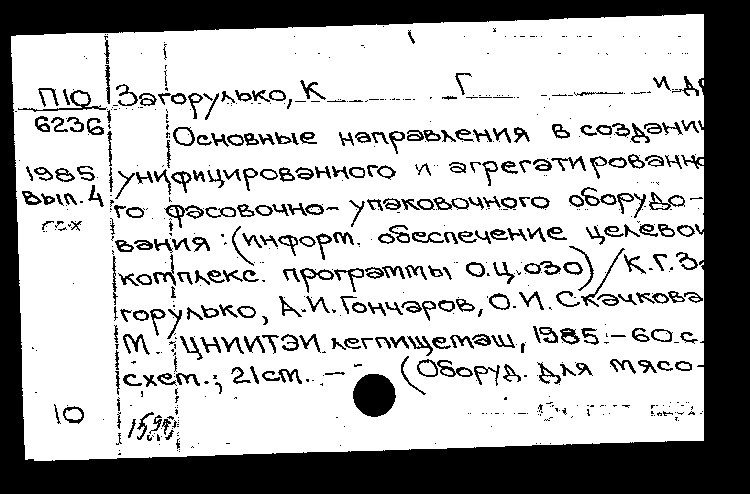 П10 Загорулько, К Г и др
6236 Основные направления в создании
1985 унифицированного и агрегатированно
Вып. 4 го фасовочно-упаковочного оборудо-
гсх вания : (информ. обеспечение целевой
комплекс. программы О.Ц.030) / К.Г. За
горулько, А.И. Гончаров, О.И. Скачкова
М. : ЦНИИТЭИлегпищемаш, 1985. – 60 с.
схем.; 21 см. – (Оборуд. для мясо-
10